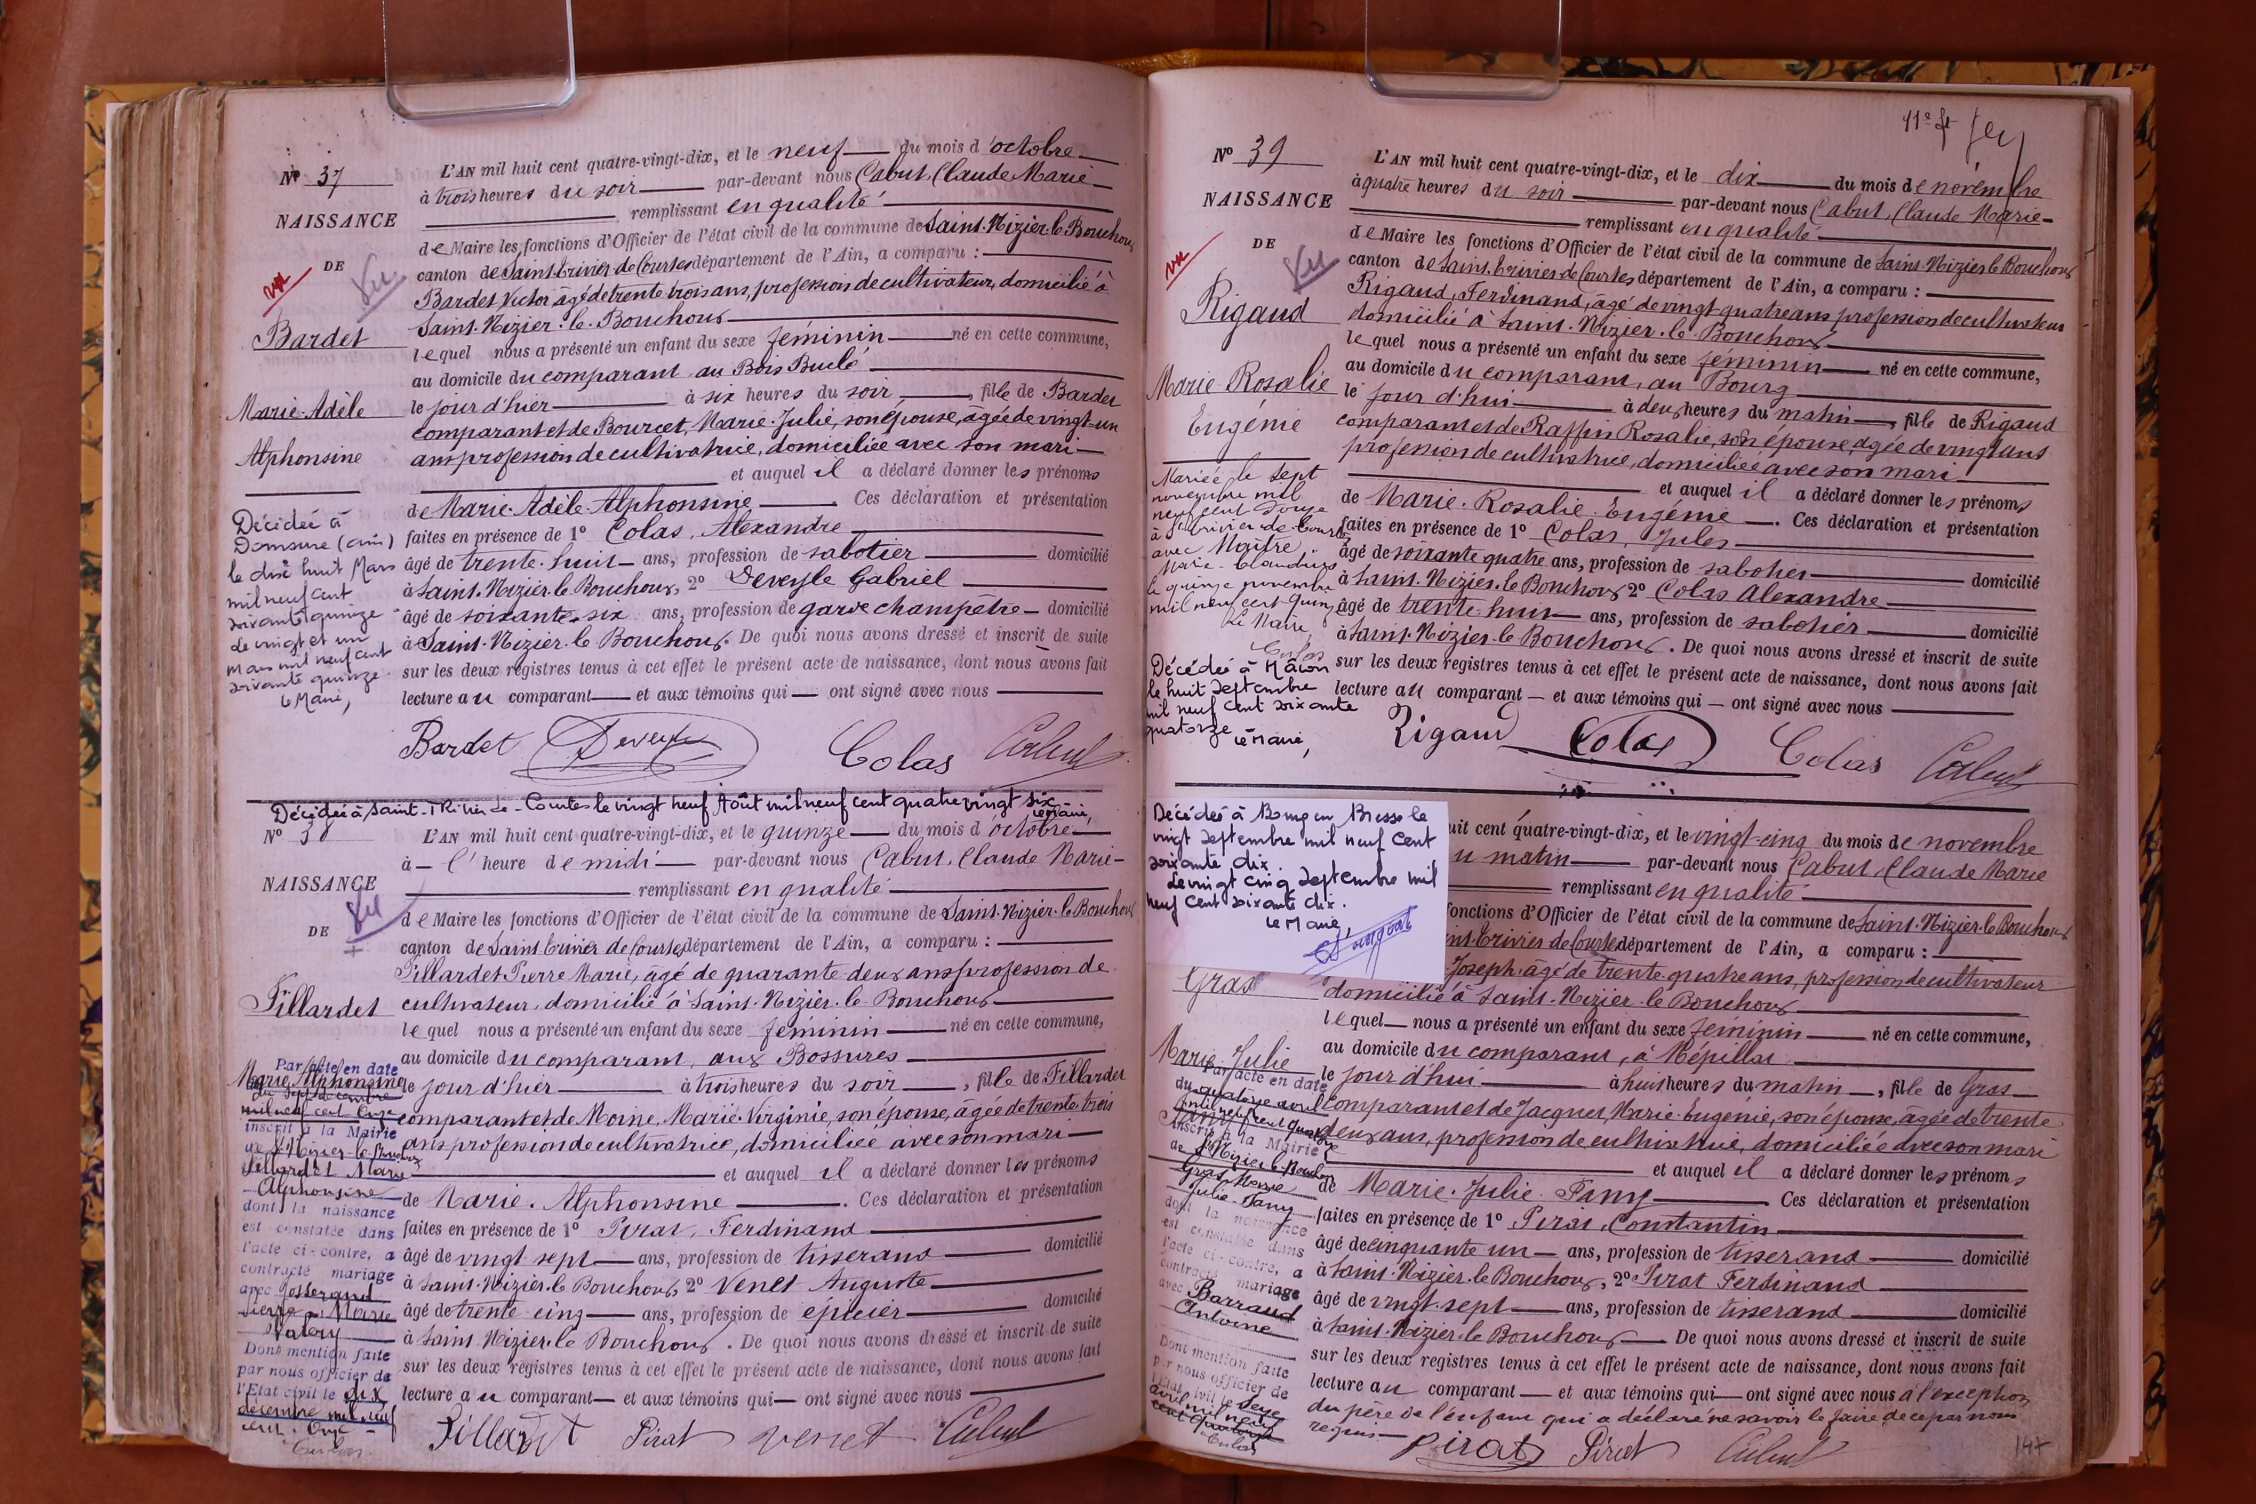 Nº 37
NAISSANCE
DE
vu
Vu
Bardet
Marie-Adèle
Alphonsine
Décédée à
Domsure (Ain)
le dix huit Mars
mil neuf cent
soixante quinze
Le vingt et un
Mars mil neuf cent
soixante quinze
Le Maire,
L'AN mil huit cent quatre-vingt-dix, et le neuf du mois d'octobre
à trois heures du soir par-devant nous Cabut, Claude Marie
remplissant en qualité
de Maire les fonctions d'Officier de l'état civil de la commune de Saint-Nizier-le-Bouchoux
canton de Saint-Trivier de Courtes département de l'Ain, a comparu :
Bardet Victor âgé de trente trois ans, profession de cultivateur, domicilié à
Saint-Nizier-le-Bouchoux
lequel nous a présenté un enfant du sexe féminin né en cette commune,
au domicile du comparant au Bois Buclé
le jour d'hier à six heures du soir, fille de Bardet
comparant et de Bourcet, Marie-Julie, son épouse, âgée de vingt-un
ans profession de cultivatrice, domiciliée avec son mari
et auquel il a déclaré donner les prénoms
de Marie-Adèle-Alphonsine. Ces déclaration et présentation
faites en présence de 1º Colas, Alexandre
âgé de trente-huit ans, profession de sabotier domicilié
à Saint-Nizier-le-Bouchoux, 2º Deveyle Gabriel
âgé de soixante-six ans, profession de garde champêtre domicilié
à Saint-Nizier-le-Bouchoux. De quoi nous avons dressé et inscrit de suite
sur les deux registres tenus à cet effet le présent acte de naissance, dont nous avons fait
lecture au comparant et aux témoins qui ont signé avec nous
Bardet Deveyle Colas Cabut
Décédée à Saint-Trivier-de-Courtes le vingt neuf Août mil neuf cent quatre vingt six
Le Maire,
Nº 38
NAISSANCE
DE
Vu
Fillardet
Marie Alphonsine
Par acte en date
du sept décembre
mil neuf cent onze
inscrit à la Mairie
de St Nizier-le-Bouchoux
Fillardet Marie
Alphonsine
dont la naissance
est constatée dans
l'acte ci-contre, a
contracté mariage
avec Josserand
Pierre-Marie
Valéry
Dont mention faite
par nous officier de
l'Etat civil le dix
décembre mil neuf
cent onze
L'AN mil huit cent quatre-vingt-dix, et le quinze du mois d'octobre
à l'heure de midi par-devant nous Cabut, Claude Marie
remplissant en qualité
de Maire les fonctions d'Officier de l'état civil de la commune de Saint-Nizier-le-Bouchoux
canton de Saint-Trivier de Courtes département de l'Ain, a comparu :
Fillardet Pierre Marie, âgé de quarante-deux ans profession de
cultivateur, domicilié à Saint-Nizier-le-Bouchoux
lequel nous a présenté un enfant du sexe féminin né en cette commune,
au domicile du comparant, aux Bossures
le jour d'hier à trois heures du soir, fille de Fillardet
comparant et de Moine, Marie-Virginie, son épouse, âgée de trente-trois
ans profession de cultivatrice, domiciliée avec son mari
et auquel il a déclaré donner les prénoms
de Marie-Alphonsine. Ces déclaration et présentation
faites en présence de 1º Pirat, Ferdinand
âgé de vingt-sept ans, profession de tisserand domicilié
à Saint-Nizier-le-Bouchoux, 2º Venet Auguste
âgé de trente-cinq ans, profession de épicier domicilié
à Saint-Nizier-le-Bouchoux. De quoi nous avons dressé et inscrit de suite
sur les deux registres tenus à cet effet le présent acte de naissance, dont nous avons fait
lecture au comparant et aux témoins qui ont signé avec nous
Fillardet Pirat Venet Cabut
11e ft
Nº 39
NAISSANCE
DE
vu
Vu
Rigaud
Marie Rosalie
Eugénie
Mariée le sept
novembre mil
neuf cent
à St Trivier-de-Courtes
avec
Marie-Claudius
le quinze novembre
mil neuf cent
Le Maire,
Décédée à Mâcon
le huit septembre
mil neuf cent soixante
quatorze
Le Maire,
L'AN mil huit cent quatre-vingt-dix, et le dix du mois de novembre
à quatre heures du soir par-devant nous Cabut, Claude Marie
remplissant en qualité
de Maire les fonctions d'Officier de l'état civil de la commune de Saint-Nizier-le-Bouchoux
canton de Saint-Trivier de Courtes département de l'Ain, a comparu :
Rigaud, Ferdinand, âgé de vingt quatre ans profession de cultivateur
domicilié à Saint-Nizier-le-Bouchoux
lequel nous a présenté un enfant du sexe féminin né en cette commune,
au domicile du comparant, au Bourg
le jour d'hui à deux heures du matin, fille de Rigaud
comparant et de Raffin Rosalie, son épouse, âgée de vingt ans
profession de cultivatrice, domiciliée avec son mari
et auquel il a déclaré donner les prénoms
de Marie-Rosalie-Eugénie. Ces déclaration et présentation
faites en présence de 1º Colas, Jules
âgé de soixante quatre ans, profession de sabotier domicilié
à Saint-Nizier-le-Bouchoux 2º Colas Alexandre
âgé de trente huit ans, profession de sabotier domicilié
à Saint-Nizier-le-Bouchoux. De quoi nous avons dressé et inscrit de suite
sur les deux registres tenus à cet effet le présent acte de naissance, dont nous avons fait
lecture au comparant et aux témoins qui ont signé avec nous
Rigaud Colas Colas Cabut
Décédée à Bourg en Bresse le
vingt septembre mil neuf cent
soixante dix.
Le vingt cinq septembre mil
neuf cent soixante dix.
Le Maire,
Gras
Marie-Julie
Fany
Par acte en date
du quatorze avril
mil neuf cent quatorze
inscrit à la Mairie
de St Nizier-le-Bouchoux
Gras Marie
Julie-Fany
dont la naissance
est constatée dans
l'acte ci-contre, a
contracté mariage
avec Barraud
Antoine
Dont mention faite
par nous officier de
l'Etat civil le seize
avril mil neuf
cent quatorze
uit cent quatre-vingt-dix, et le vingt-cinq du mois de novembre
u matin par-devant nous Cabut, Claude Marie
remplissant en qualité
fonctions d'Officier de l'état civil de la commune de Saint-Nizier-le-Bouchoux
int-Trivier de Courtes département de l'Ain, a comparu :
Joseph, âgé de trente-quatre ans, profession de cultivateur
domicilié à Saint-Nizier-le-Bouchoux
lequel nous a présenté un enfant du sexe féminin né en cette commune,
au domicile du comparant, à Mépillat
le jour d'hui à huit heures du matin, fille de Gras
comparant et de Jacquet, Marie-Eugénie, son épouse, âgée de trente
deux ans, profession de cultivatrice, domiciliée avec son mari
et auquel il a déclaré donner les prénoms
de Marie-Julie-Fany. Ces déclaration et présentation
faites en présence de 1º Pirat, Constantin
âgé de cinquante un ans, profession de tisserand domicilié
à Saint-Nizier-le-Bouchoux, 2º Pirat Ferdinand
âgé de vingt-sept ans, profession de tisserand domicilié
à Saint-Nizier-le-Bouchoux. De quoi nous avons dressé et inscrit de suite
sur les deux registres tenus à cet effet le présent acte de naissance, dont nous avons fait
lecture au comparant et aux témoins qui ont signé avec nous à l'exception
du père de l'enfant qui a déclaré ne savoir le faire de ce par nous
requis.
Pirat Pirat Cabut